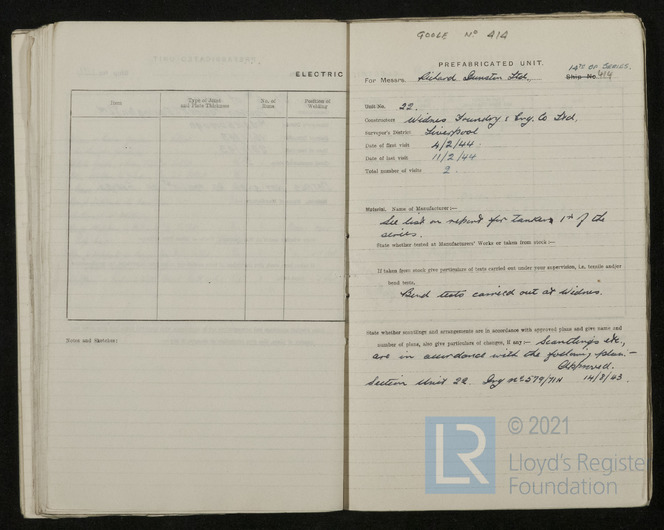 ELECTRIC
Item
Type of Joint
and Plate Thickness
No. of
Runs
Position of
Welding
Notes and Sketches:
GOOLE Nº 414
PREFABRICATED UNIT.
14TH OF SERIES.
For Messrs. Richard Dunston Ltd. Ship No. 414
Unit No. 22.
Constructors Widnes Foundry & Eng. Co Ltd.
Surveyor's District Liverpool
Date of first visit 4/2/44.
Date of last visit 11/2/44
Total number of visits 2.
Material. Name of Manufacturer:—
See list on report for tankers 1st of the
series.
State whether tested at Manufacturers' Works or taken from stock:—
If taken from stock give particulars of tests carried out under your supervision, i.e. tensile and/or
bend tests.
Bend tests carried out at Widnes.
State whether scantlings and arrangements are in accordance with approved plans and give name and
number of plans, also give particulars of changes, if any:— Scantlings etc.,
are in accordance with the following plan:—
Approved.
Section Unit 22. Drg nº 579/71H 14/8/43.
© 2021
LR
Lloyd's Register
Foundation